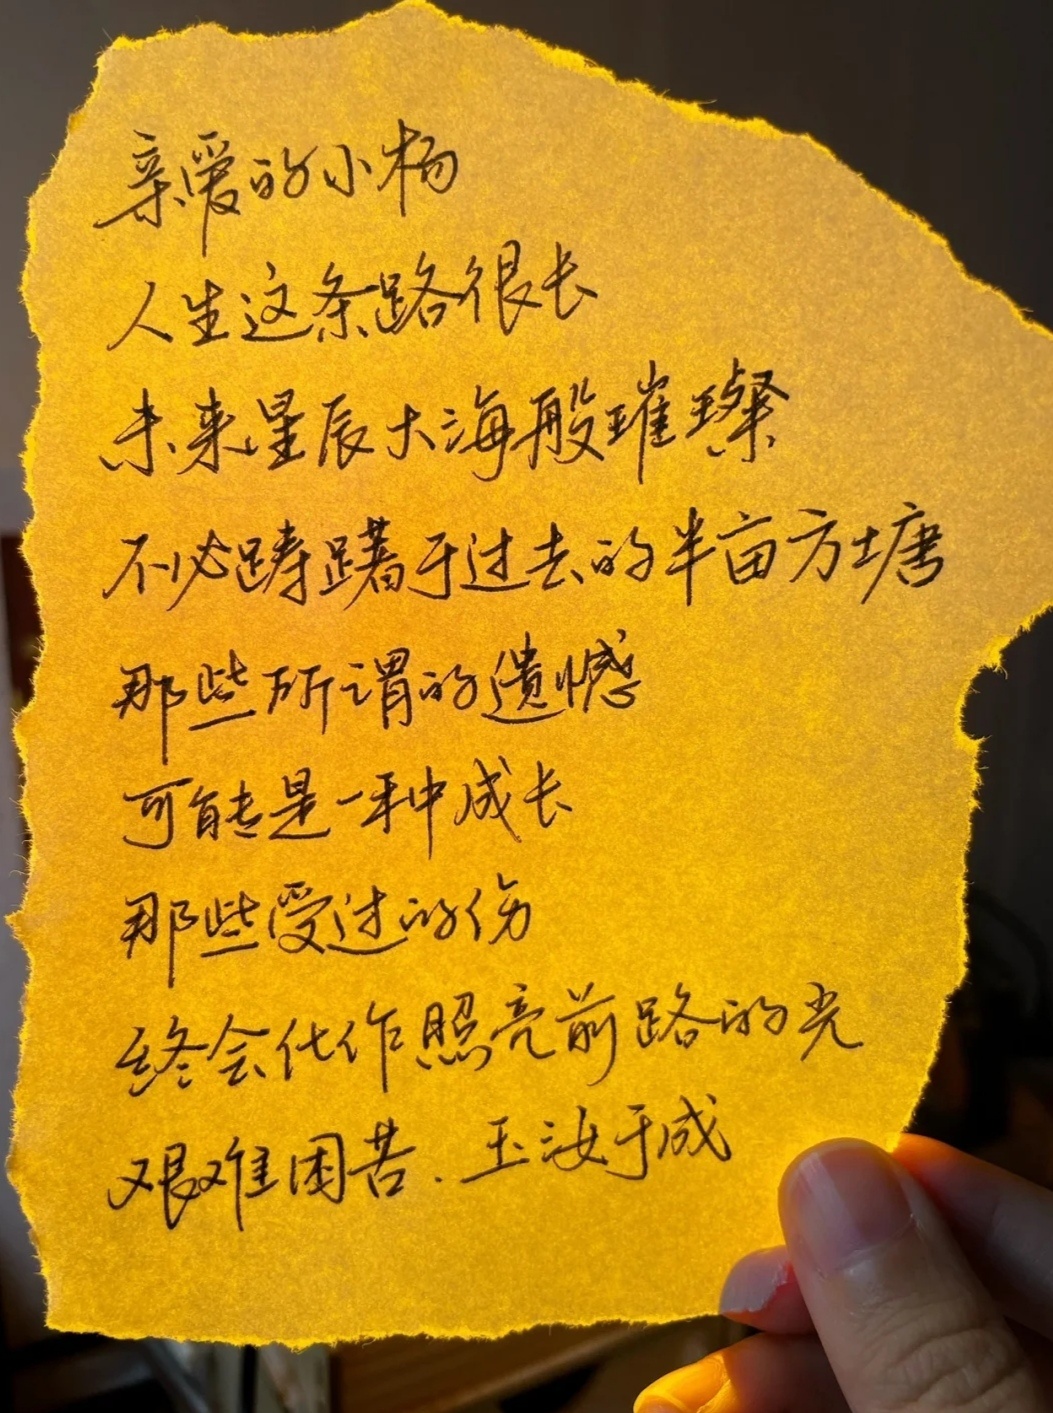 亲爱的小杨
人生这条路很长
未来星辰大海般璀璨
不必踌躇于过去的半亩方塘
那些所谓的遗憾
可能是一种成长
那些受过的伤
终会化作照亮前路的光
艰难困苦.玉汝于成